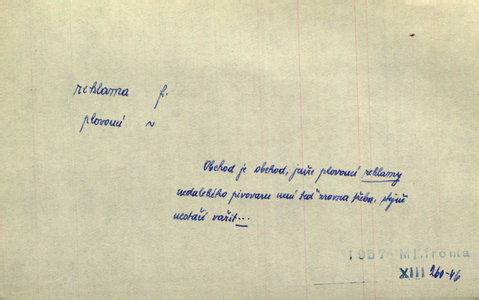 reklama f.
plovoucí ~
Obchod je obchod, jenže plovoucí reklamy
nedalekého pivovaru není teď zrovna třeba, stejně
nestačí vařit...
1987 Ml.fronta
XIII 260-46